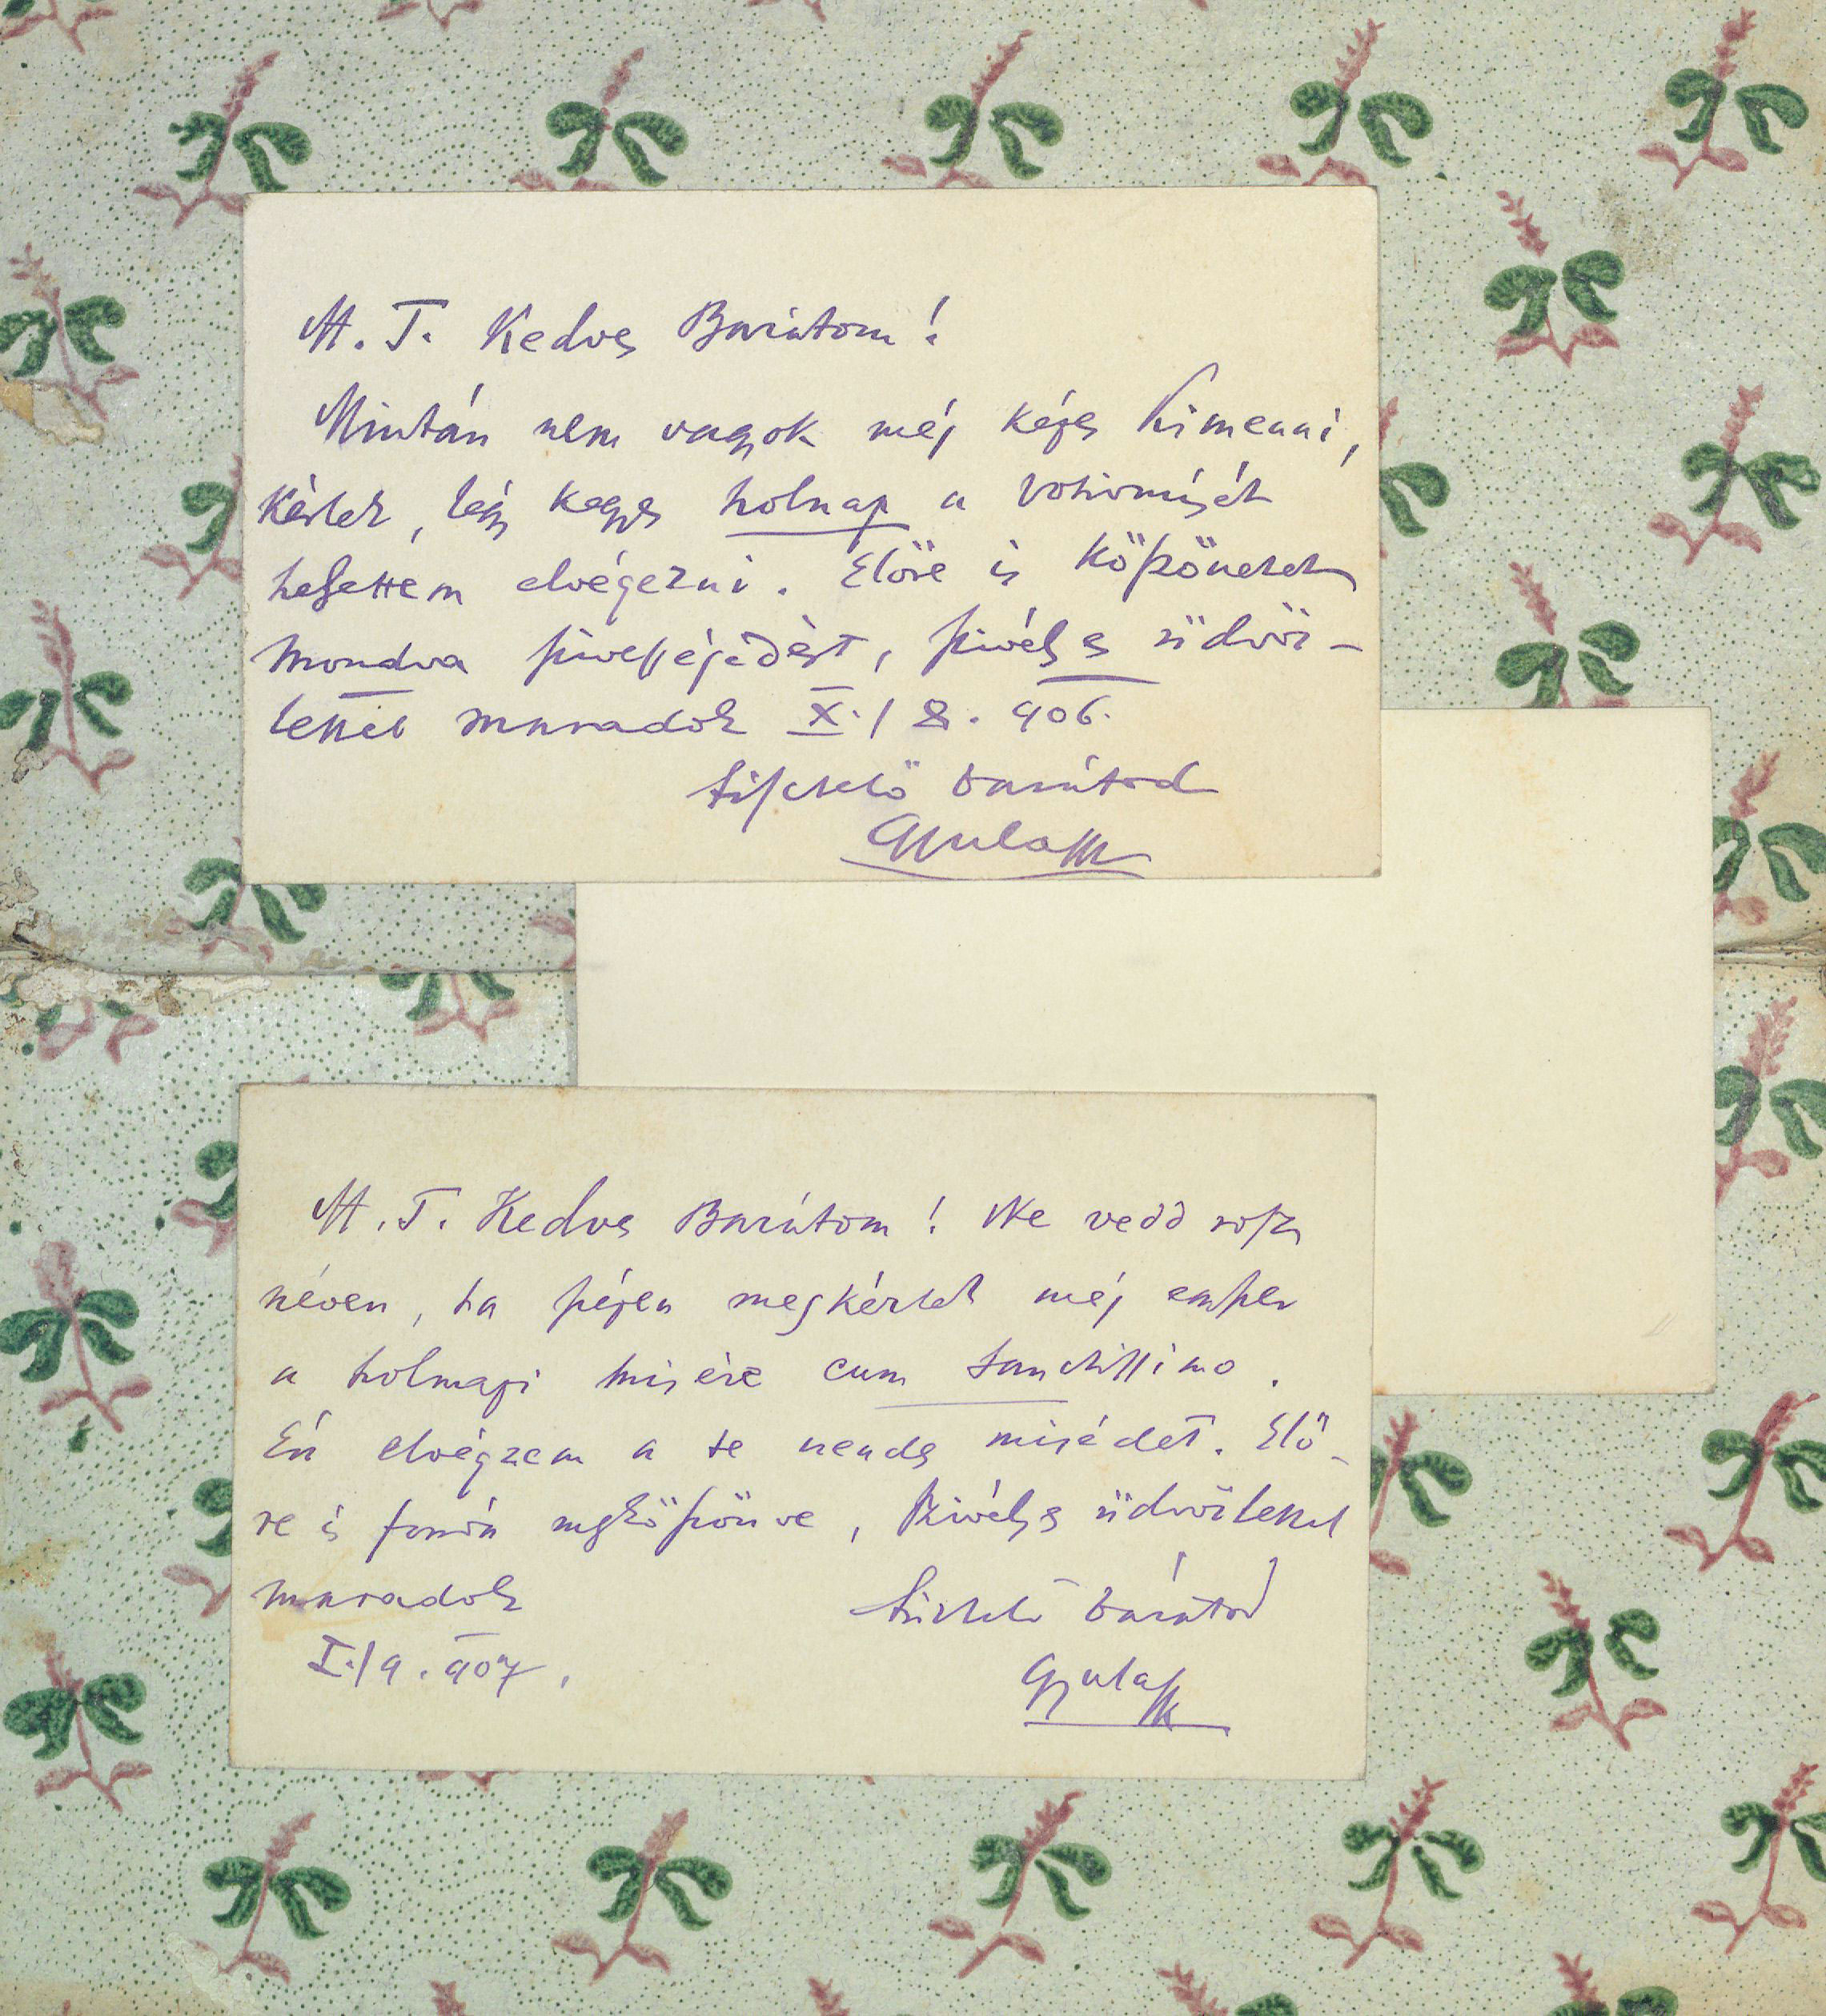 M. T. Kedves Barátom!
Miután nem vagyok még képes kimenni,
kérlek, légy kegyes holnap a votivmisét
helyettem elvégezni. Előre is köszönetet
mondva szivességedért, szivélyes üdvöz-
lettel maradok X./8. 906.
tisztelő barátod
Gyula
M. T. Kedves Barátom! Ne vedd rossz
néven, ha szépen megkérlek még egyszer
a holnapi misére cum sanctissimo.
Én elvégzem a te rendes misédet. Elő-
re is forrón megköszönve, szivélyes üdvözlettel
maradok tisztelő barátod
I./9. 907. Gyula